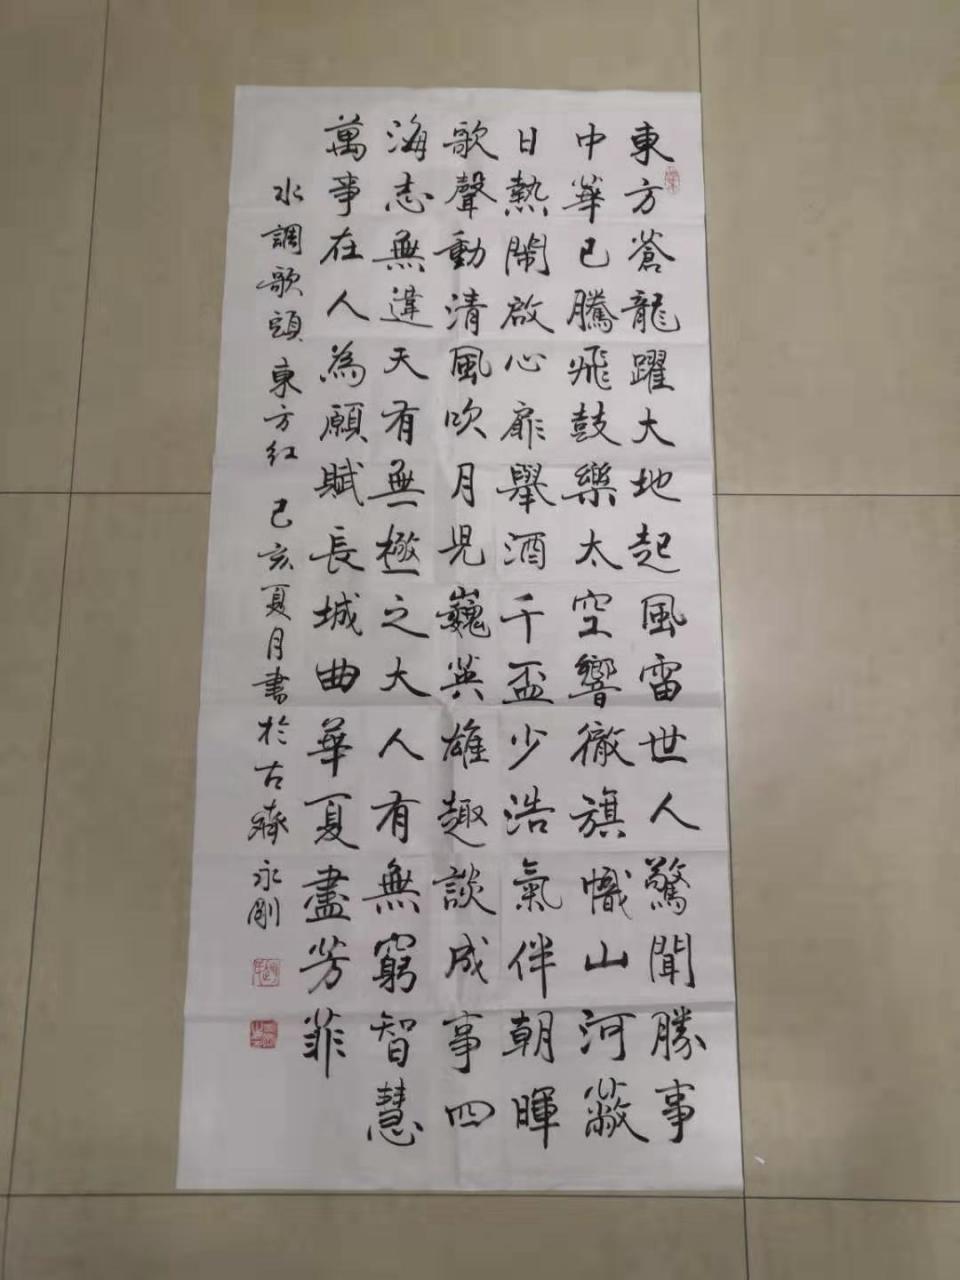 東方蒼龍躍大地起風雷世人驚聞勝事
中華已騰飛鼓樂太空響徹旗幟山河蔽
日熱鬧啟心扉舉酒千盃少浩氣伴朝暉
歌聲動清風吹月見巍英雄趣談成事四
海志無違天有無極之大人有無窮智慧
萬事在人為願賦長城曲華夏盡芳菲
水調歌頭東方紅 己亥夏月書於古齊永剛